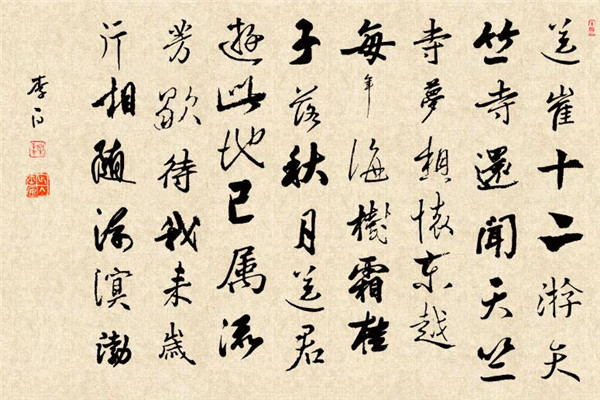 送崔十二游天
竺寺還聞天竺
寺夢想懷東越
每年海樹霜桂
子落秋月送君
遊此地已属流
芳歇待我来歲
行相随浮溟渤
李白